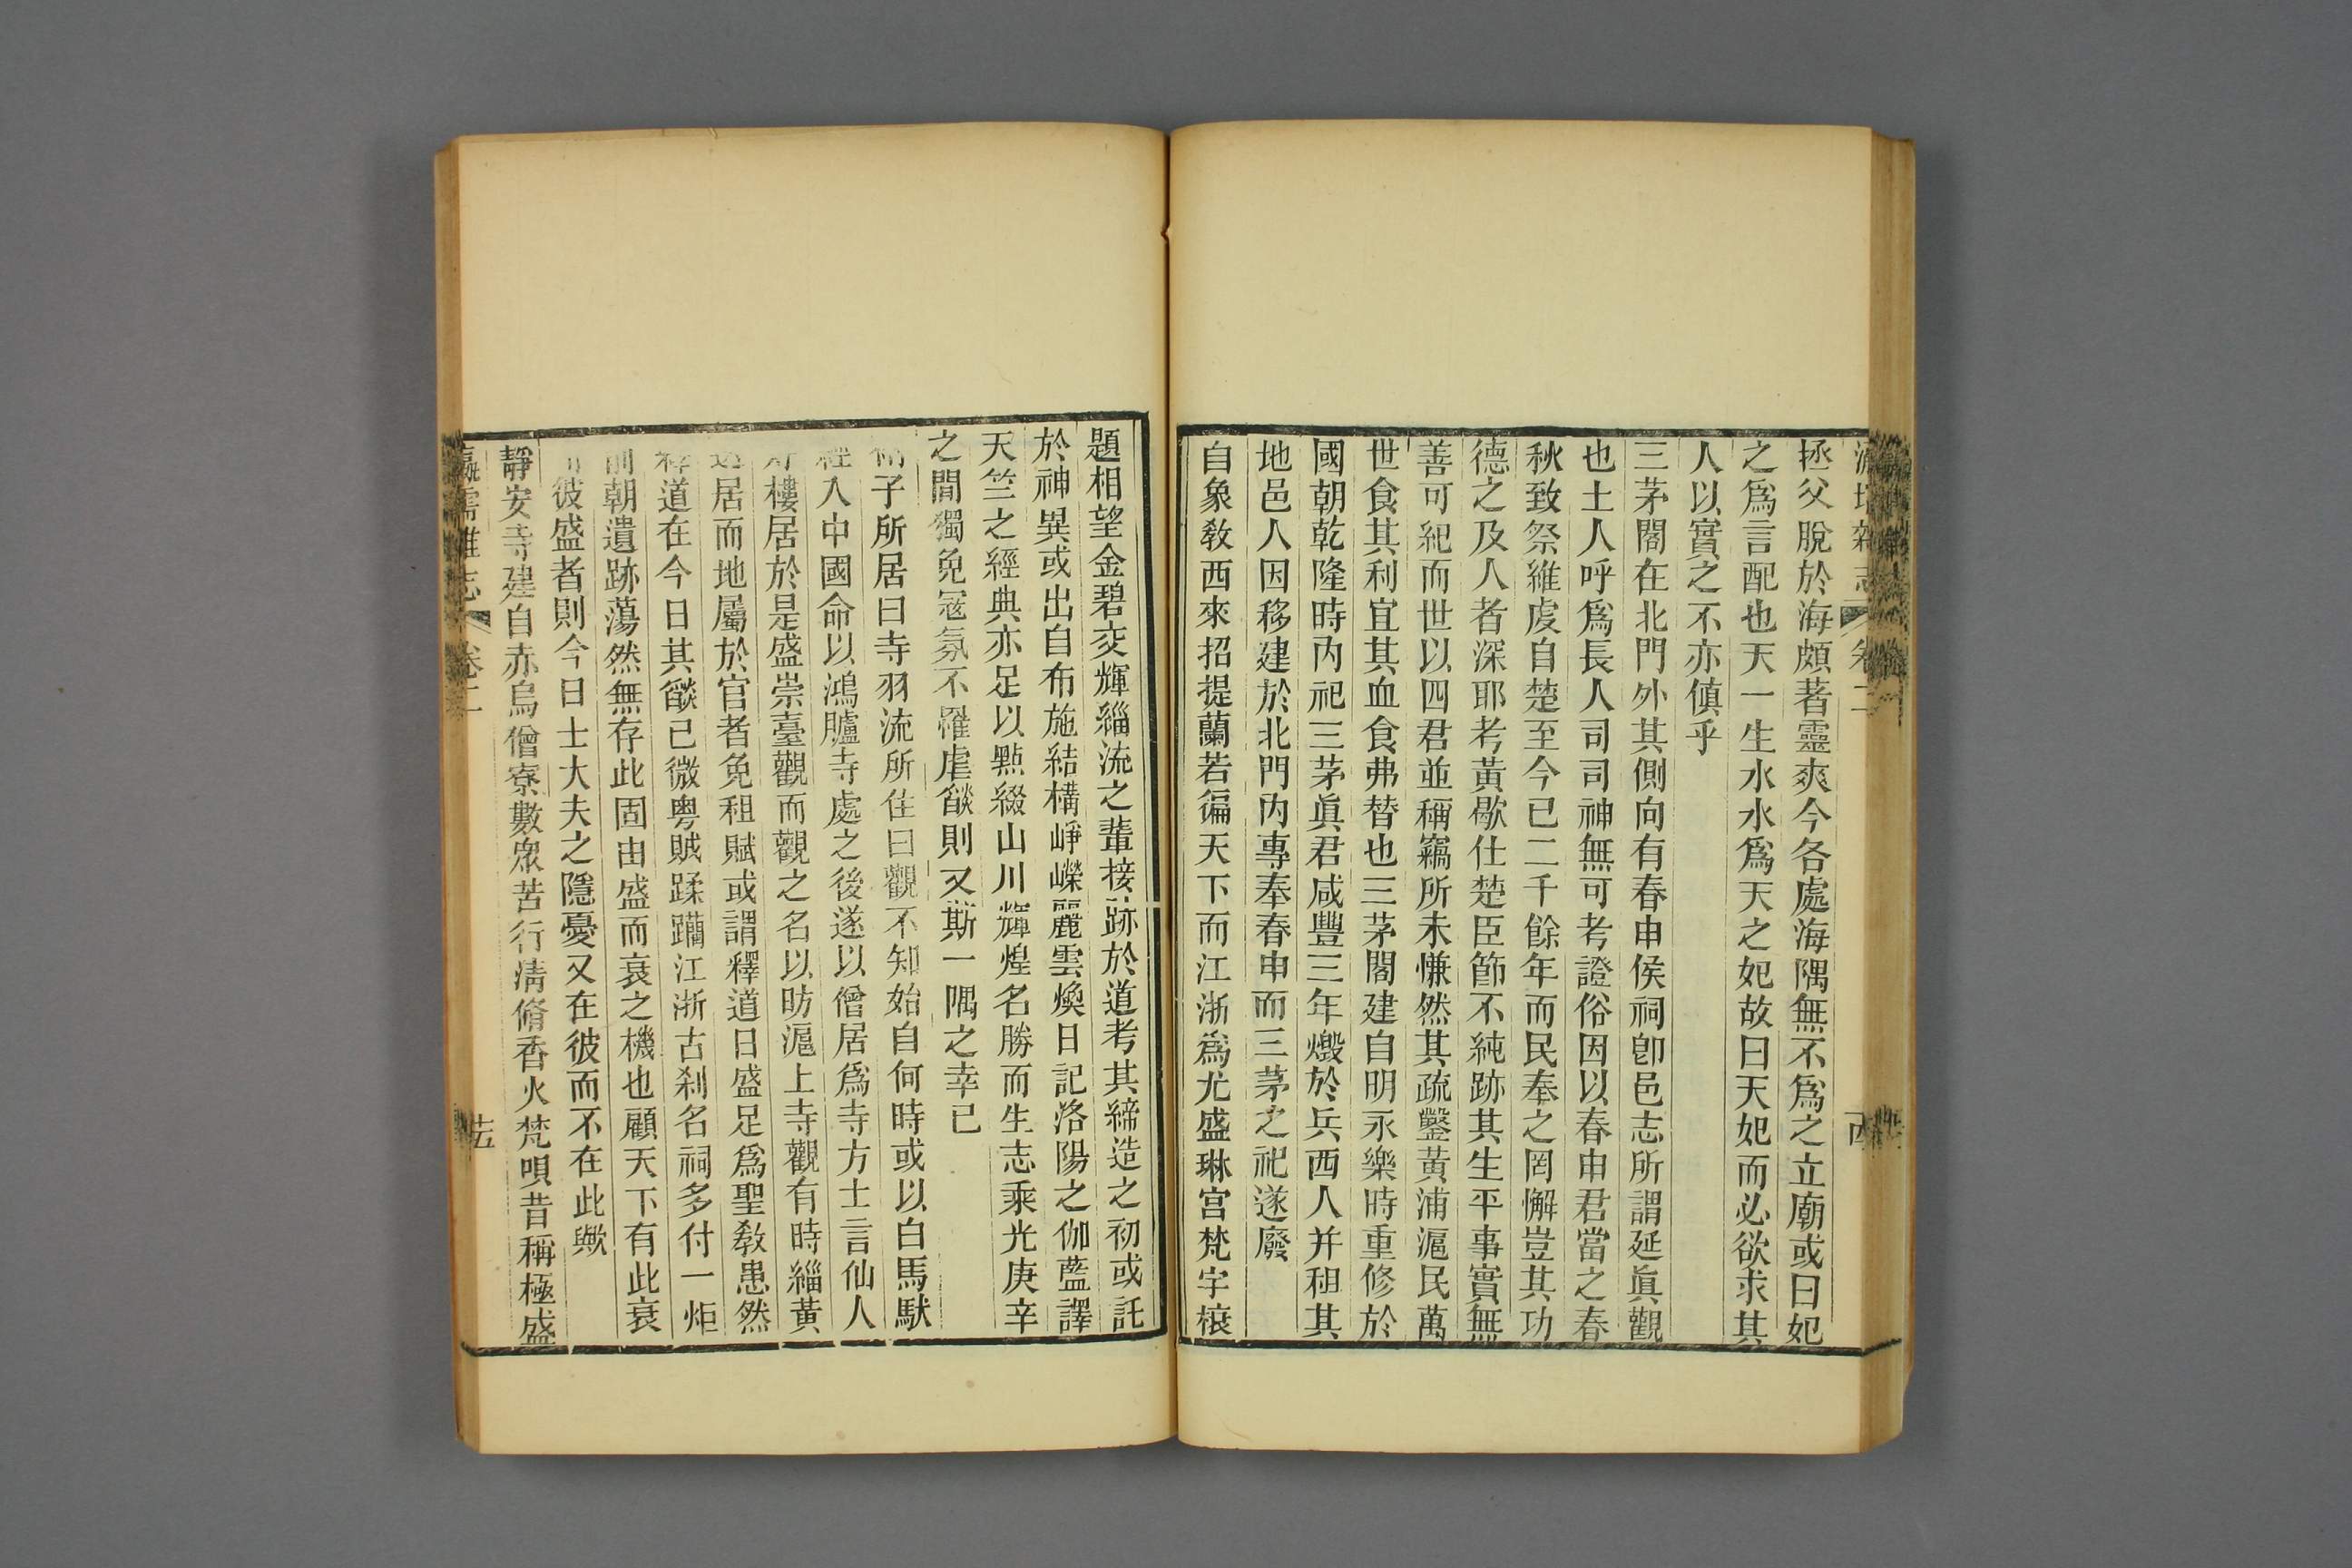 瀛壖雜志 卷二
拯父脫於海頗著靈爽今各處海隅無不爲之立廟或曰妃
之爲言配也天一生水水爲天之妃故曰天妃而必欲求其
人以實之不亦傎乎
三茅閣在北門外其側向有春申侯祠卽邑志所謂延眞觀
也土人呼爲長人司司神無可考證俗因以春申君當之春
秋致祭維虔自楚至今已二千餘年而民奉之罔懈豈其功
德之及人者深耶考黃歇仕楚臣節不純跡其生平事實無
善可紀而世以四君並稱竊所未慊然其疏鑿黃浦滬民萬
世食其利宜其血食弗替也三茅閣建自明永樂時重修於
國朝乾隆時內祀三茅眞君咸豐三年燬於兵西人并租其
地邑人因移建於北門內專奉春申而三茅之祀遂廢
自象敎西來招提蘭若徧天下而江浙爲尤盛琳宮梵宇榱
題相望金碧交輝緇流之輩接跡於道考其締造之初或託
於神異或出自布施結構崢嶸麗雲煥日記洛陽之伽藍譯
天竺之經典亦足以點綴山川輝煌名勝而生志乘光庚辛
之閒獨免寇氛不罹虐燄則又斯一隅之幸已
佛子所居曰寺羽流所住曰觀不知始自何時或以白馬馱
經入中國命以鴻臚寺處之後遂以僧居爲寺方士言仙人
好樓居於是盛崇臺觀而觀之名以昉滬上寺觀有時緇黃
迭居而地屬於官者免租賦或謂釋道日盛足爲聖敎患然
釋道在今日其燄已微粵賊蹂躪江浙古刹名祠多付一炬
前朝遺跡蕩然無存此固由盛而衰之機也顧天下有此衰
彼盛者則今日士大夫之隱憂又在彼而不在此歟
靜安寺建自赤烏僧寮數衆苦行淸脩香火梵唄昔稱極盛
瀛壖雜志 卷二 十五